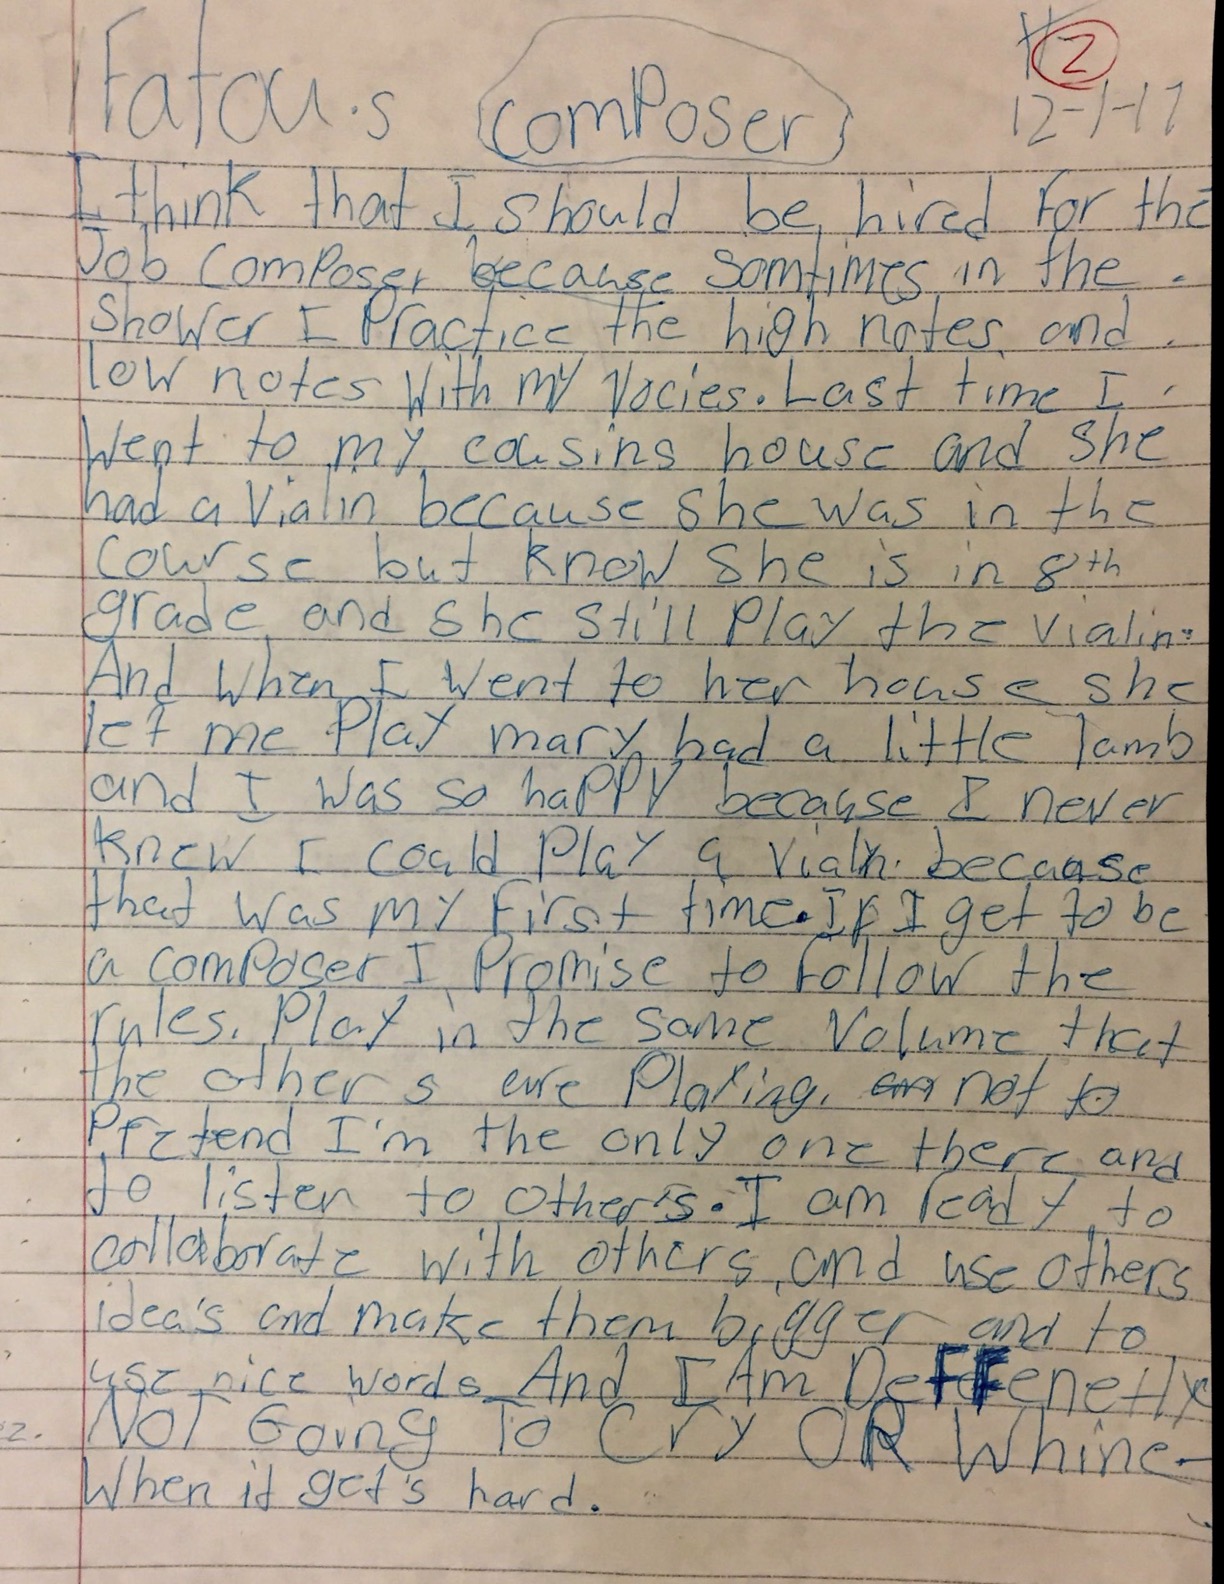 Fatou.s composer
2
12-1-17
I think that I should be hired for the
Job composer because somtimes in the
shower I Practice the high notes and
low notes With my Vocies. Last time I
Went to my cousins house and she
had a Vialin because she was in the
course but know she is in 8th
grade and she still Play the Vialin.
And When I Went to her house she
let me Play mary had a little lamb
and I was so happy because I never
Knew I could Play a Vialn. because
that was my first time. If I get to be
a composer I Promise to follow the
rules. Play in the same Volume that
the others are Playing. not to
Pretend I'm the only one there and
to listen to other's. I am ready to
collaborate with others and use others
idea's and make them bigger and to
use nice words And I Am Deffenetly
NOT Going To Cry OR Whine
When it get's hard.